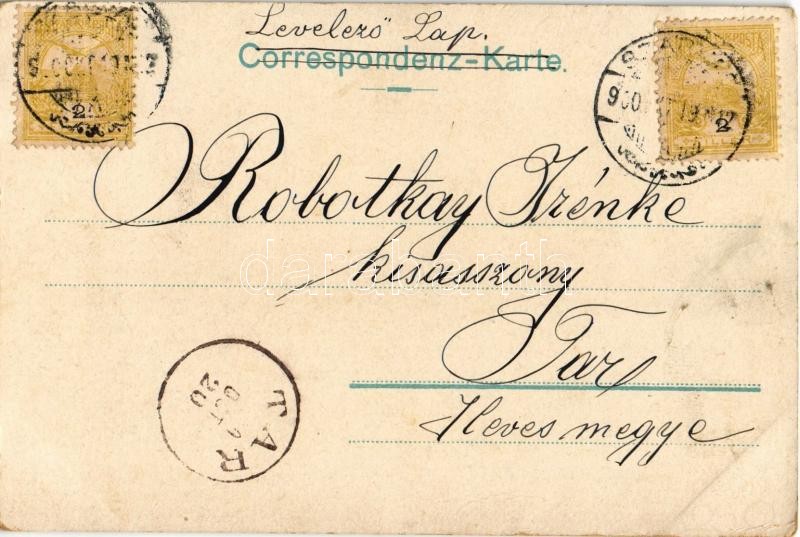 Levelező Lap.
Correspondenz-Karte.
Robotkay Irénke
kisasszony
Tar
Heves megye
TAR
OCT
20
2
2
darabanth